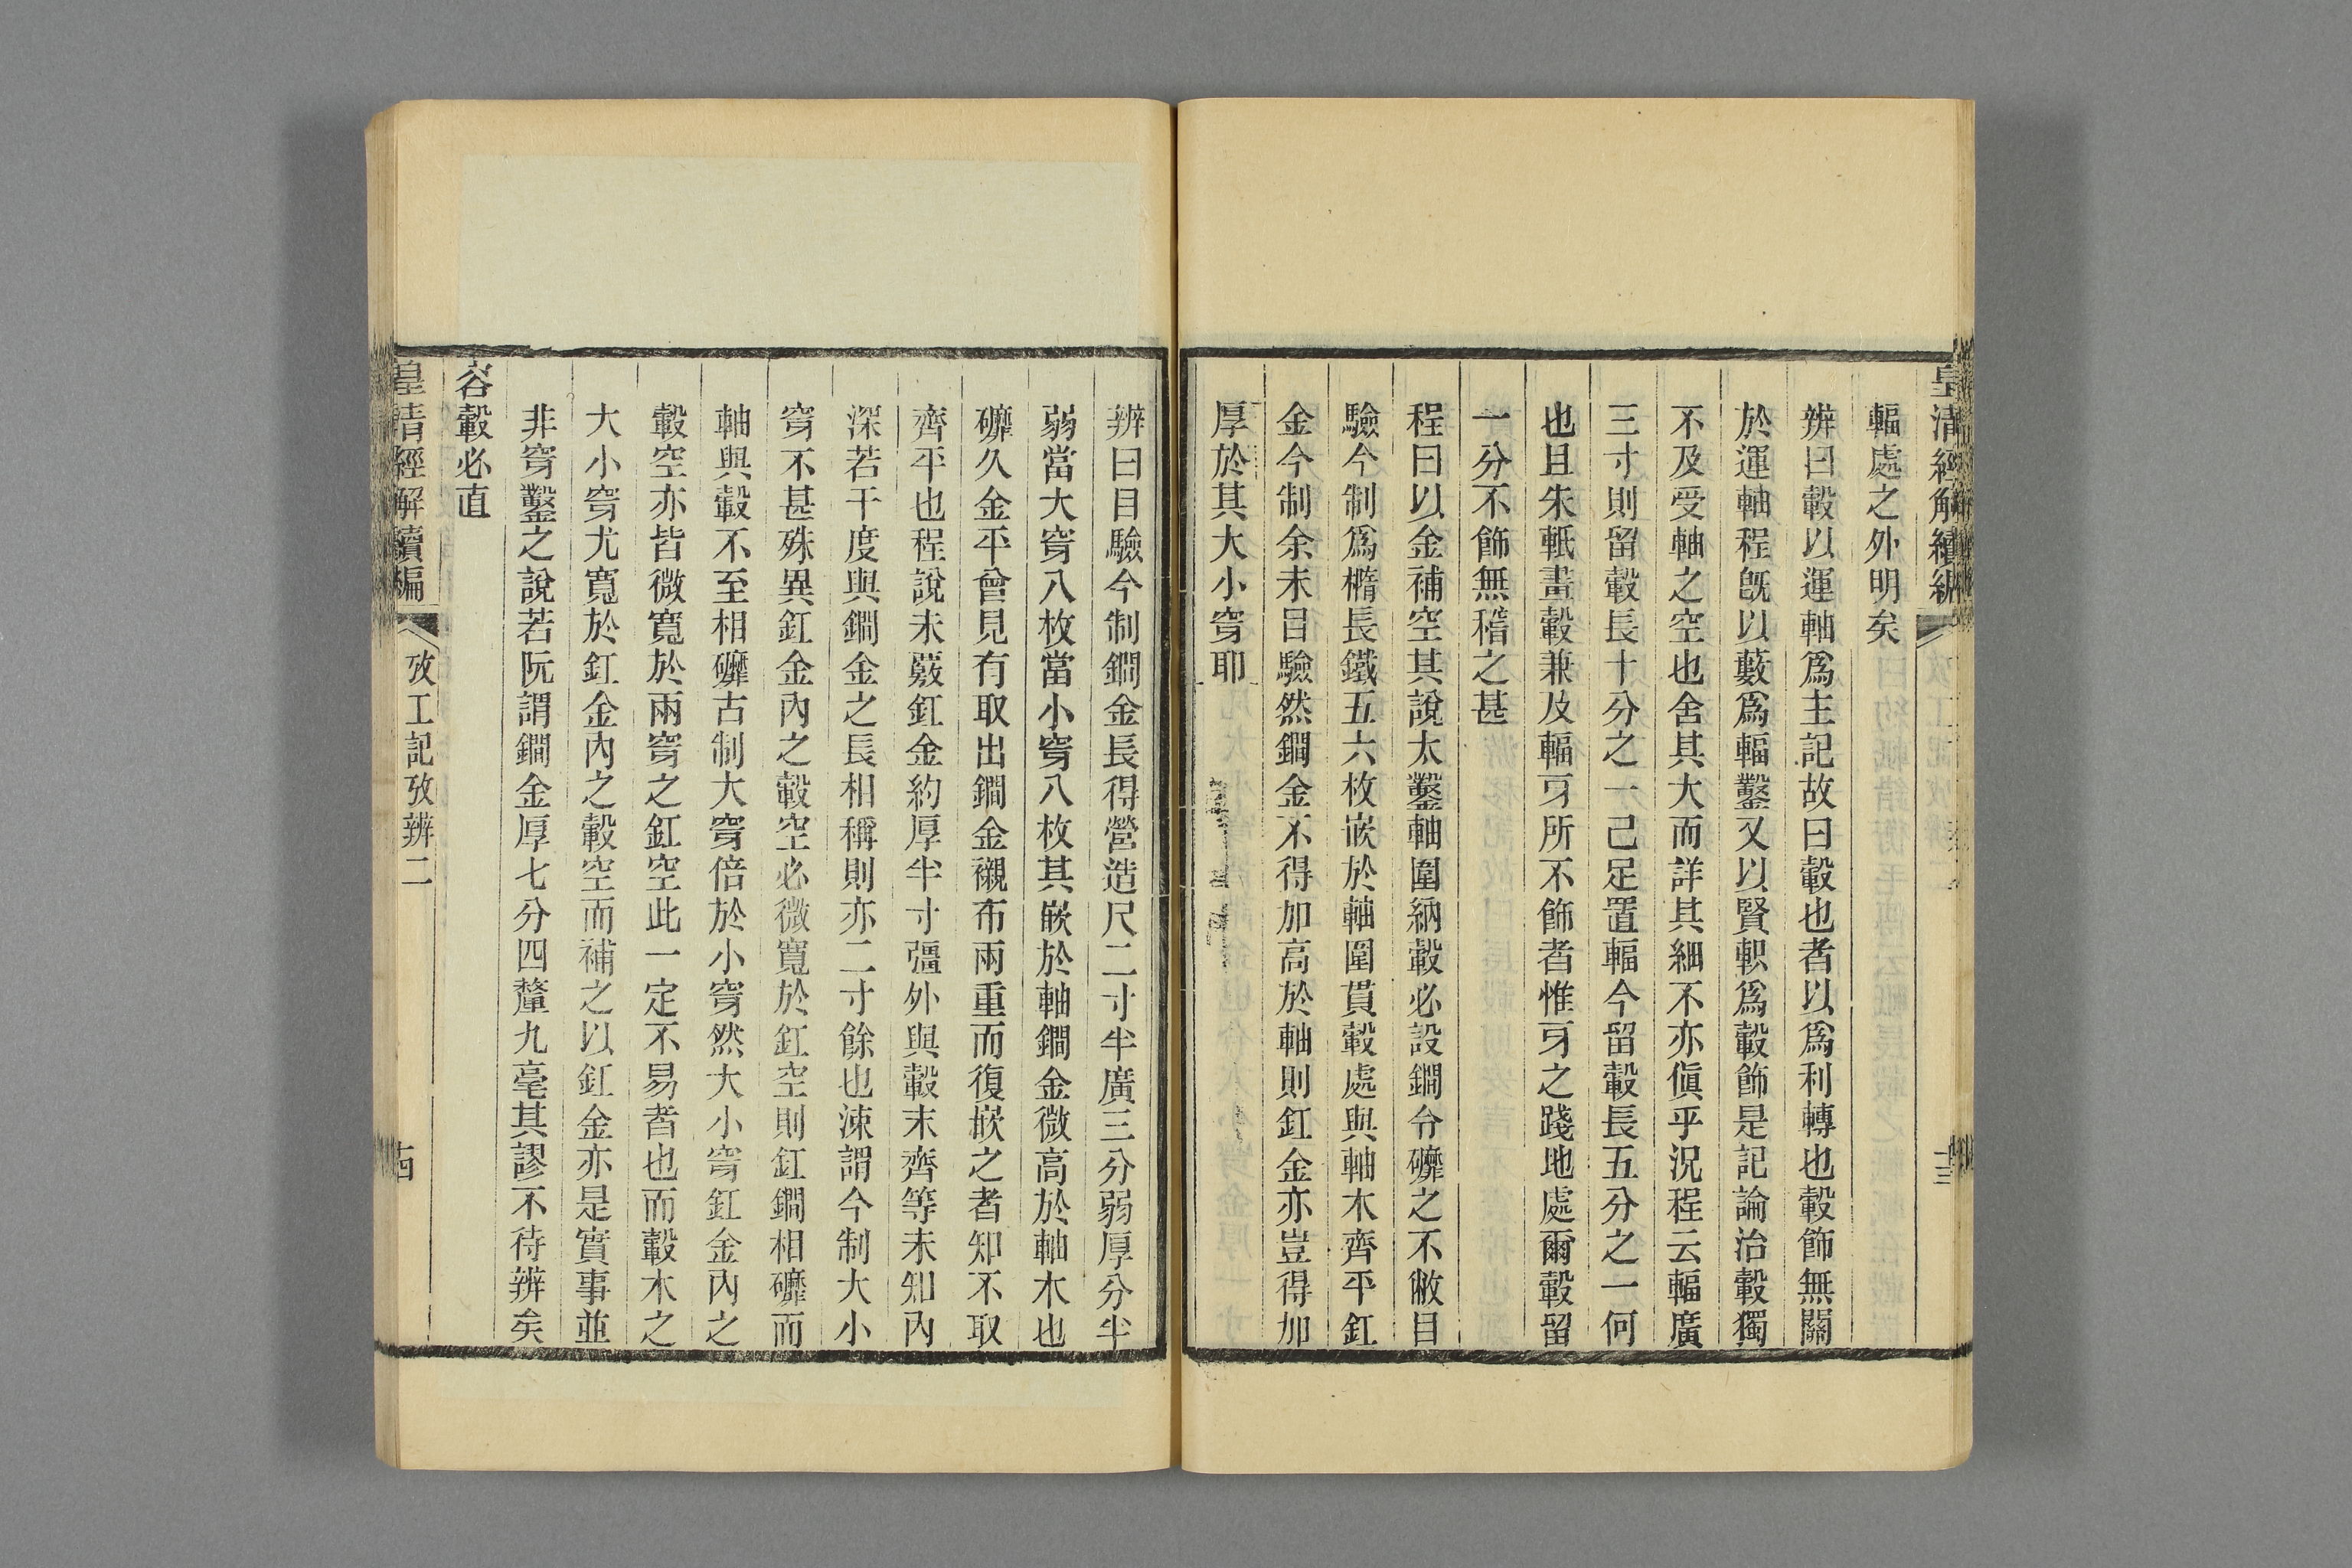 皇清經解續編
輻處之外明矣
辨曰轂以運軸爲主記故曰轂也者以爲利轉也轂飾無關
於運軸程旣以藪爲輻鑿又以賢軹爲轂飾是記論治轂獨
不及受軸之空也舍其大而詳其細不亦傎乎況程云輻廣
三寸則留轂長十分之一己足置輻今留轂長五分之一何
也且朱軝畫轂兼及輻牙所不飾者惟牙之踐地處爾轂留
一分不飾無稽之甚
程曰以金補空其說太鑿軸圍納轂必設鐧令礳之不敝目
驗今制爲橢長鐵五六枚嵌於軸圍貫轂處與軸木齊平釭
金今制余未目驗然鐧金不得加高於軸則釭金亦豈得加
厚於其大小穿耶
十三
辨曰目驗今制鐧金長得營造尺二寸半廣三分弱厚分半
弱當大穿八枚當小穿八枚其嵌於軸鐧金微高於軸木也
礳久金平曾見有取出鐧金襯布兩重而復嵌之者知不取
齊平也程說未覈釭金約厚半寸彊外與轂末齊等未知內
深若干度與鐧金之長相稱則亦二寸餘也涑謂今制大小
穿不甚殊異釭金內之轂空必微寬於釭空則釭鐧相礳而
軸與轂不至相礳古制大穿倍於小穿然大小穿釭金內之
轂空亦皆微寬於兩穿之釭空此一定不易者也而轂木之
大小穿尤寬於釭金內之轂空而補之以釭金亦是實事並
非穿鑿之說若阮謂鐧金厚七分四釐九毫其謬不待辨矣
容轂必直
皇清經解續編
攷工記攷辨二
十四